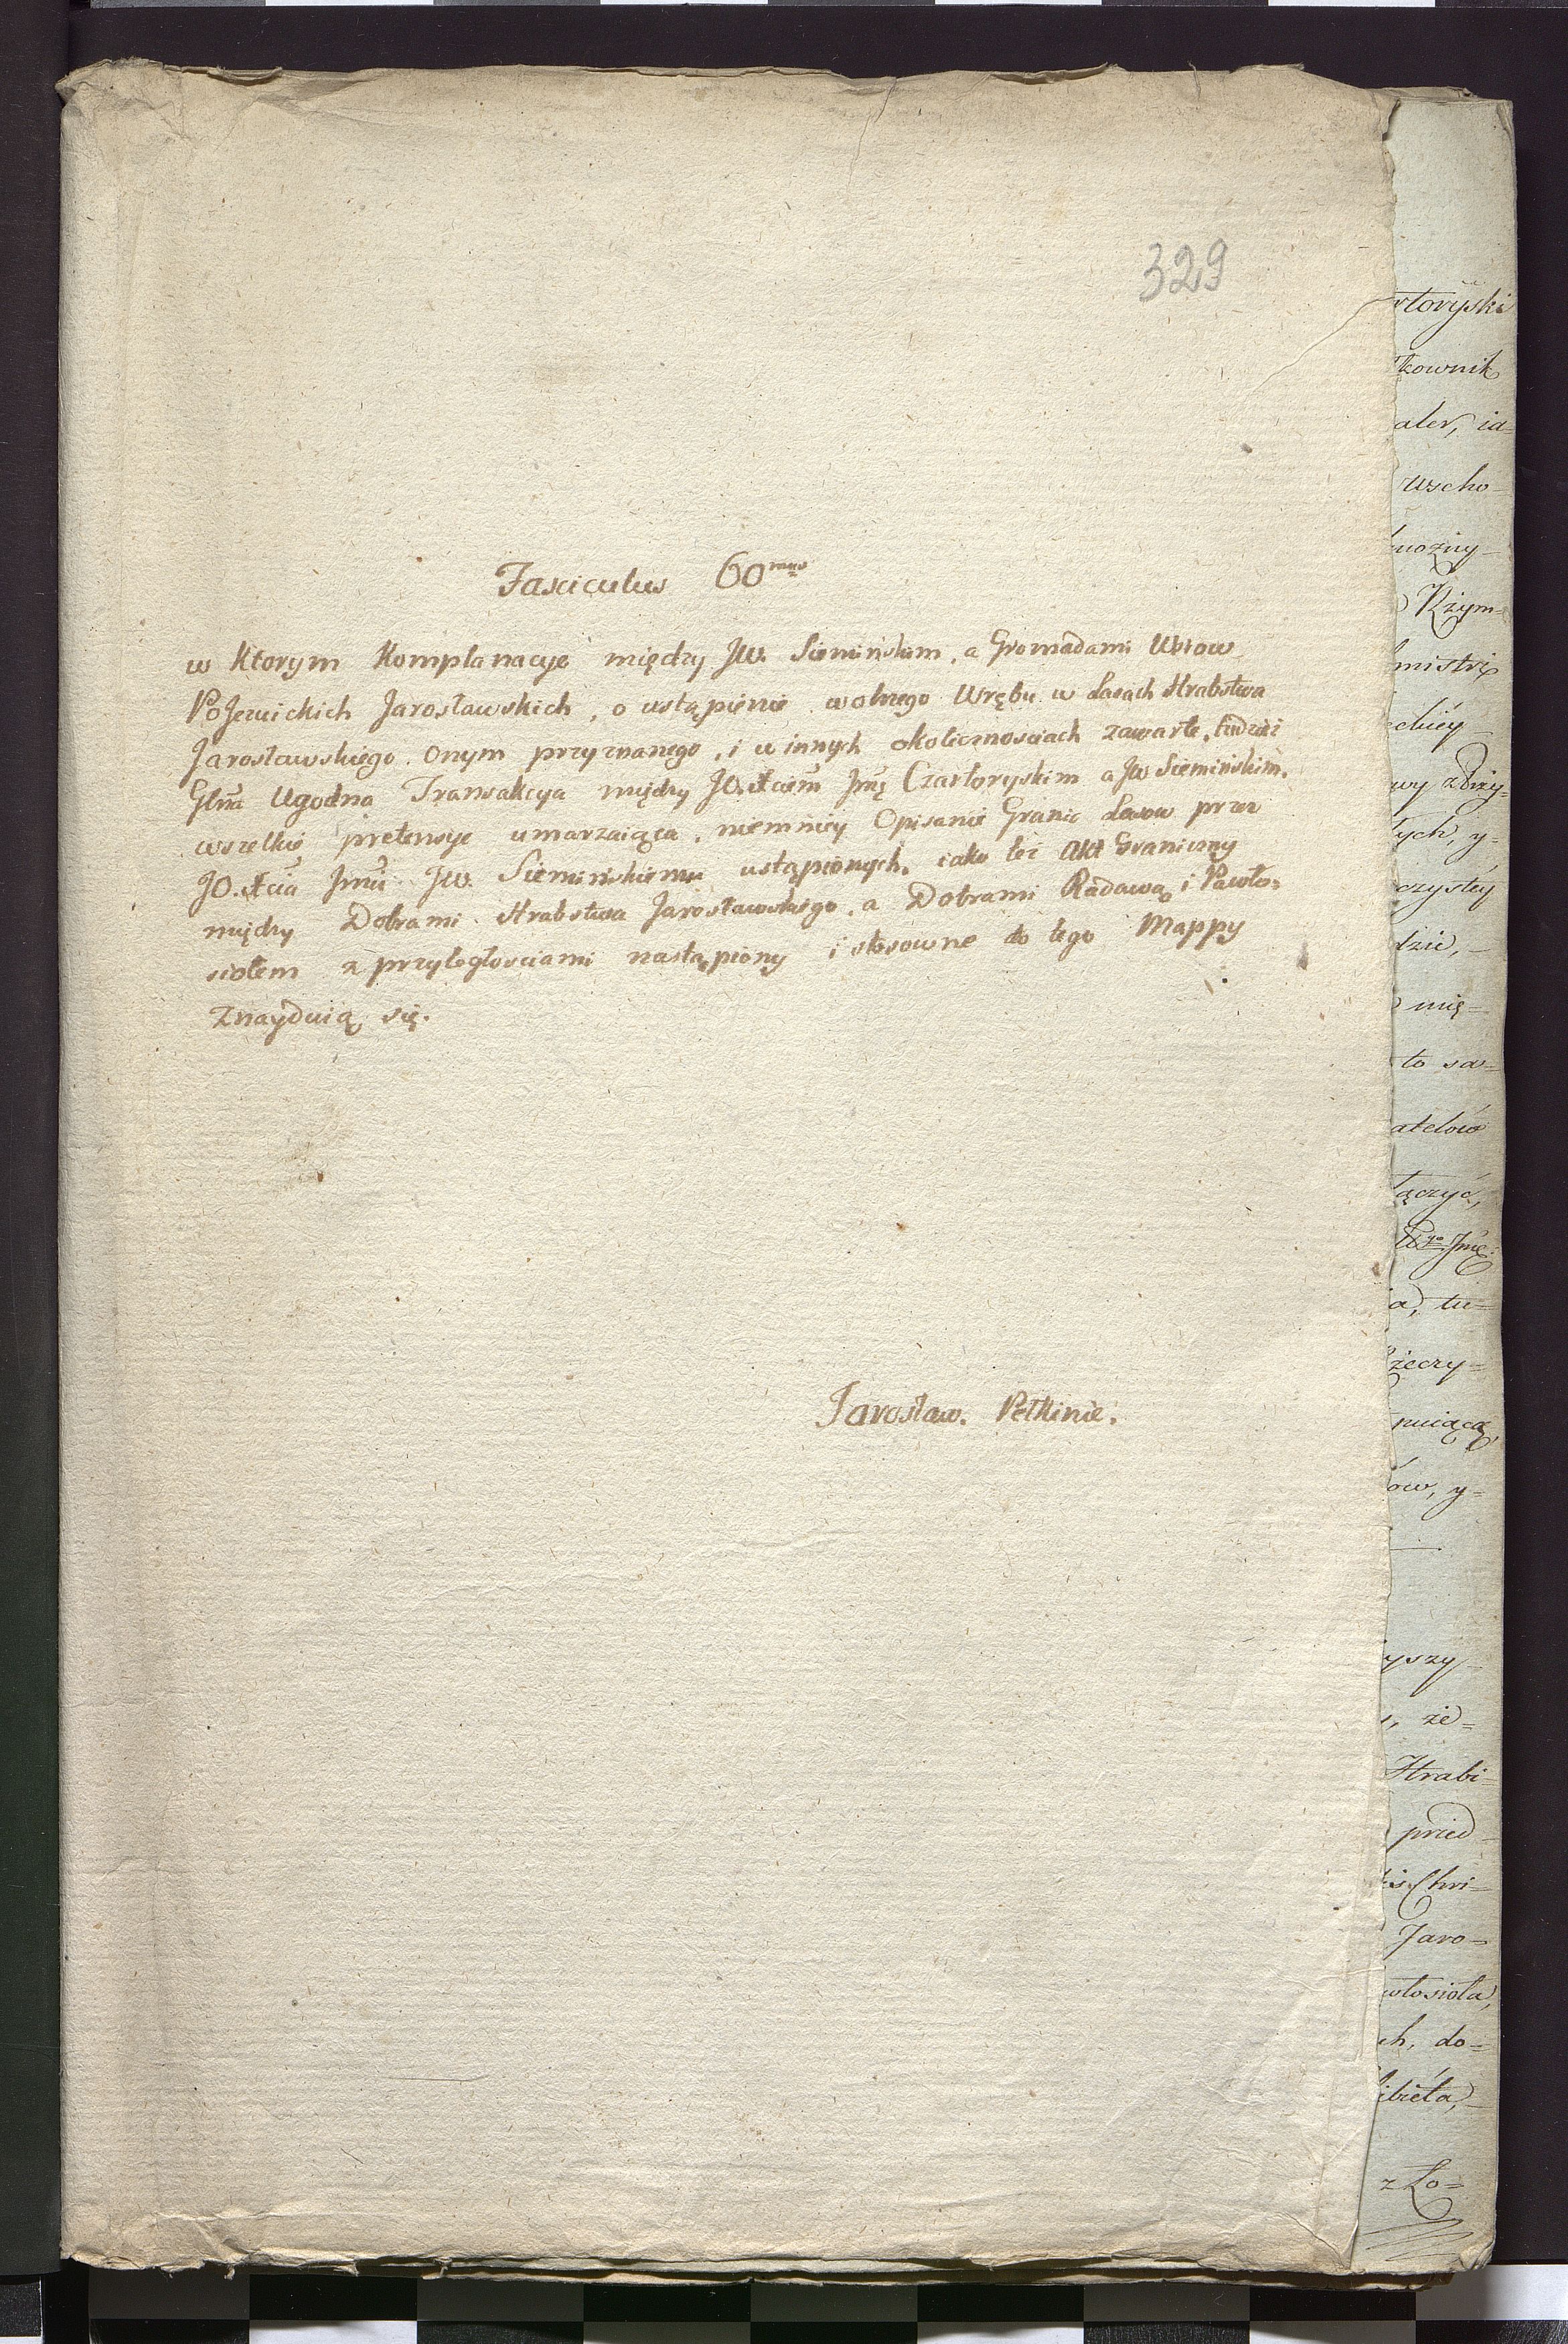 329
Fasciculus 60mus
w Ktorym Komplanacye między JW. Siemińskim, a Gromadami
Jarosławskich, o ustąpienie wolnego Wrębu w Lasach Hrabstwa
Jarosławskiego onym przyznanego, i w innych okolicznosciach zawarte, tudzież
Ugodna Transakcya między JO. Xciem Jmę Czartoryskim a JW Siemińskim,
wszelkie pretensye umarzaiąca, niemniey Opisanie Granic Lasow przez
JO. Xcia Jmci JW. Siemińskiemu ustąpionych, iako też Akt Graniczny
między Dobrami Hrabstwa Jarosławskiego, a Dobrami Radawą i Pawło-
siołem z przyległosciami nastąpiony i stosowne do tego Mappy
Znayduią się.
Jarosław. Pełkinie.
rtoryski
tkownik
aler, ia=
wscho-
Rzym=
mistrz
czystey
dzie,-
mię-
to sa=
atelów
łączyć,
a, tu=
rzeczy=
ów, y-
yszy
że=
Hrabi-
przed-
Chri=
Jaro=
włosioła,
ch, do=
z Ło=